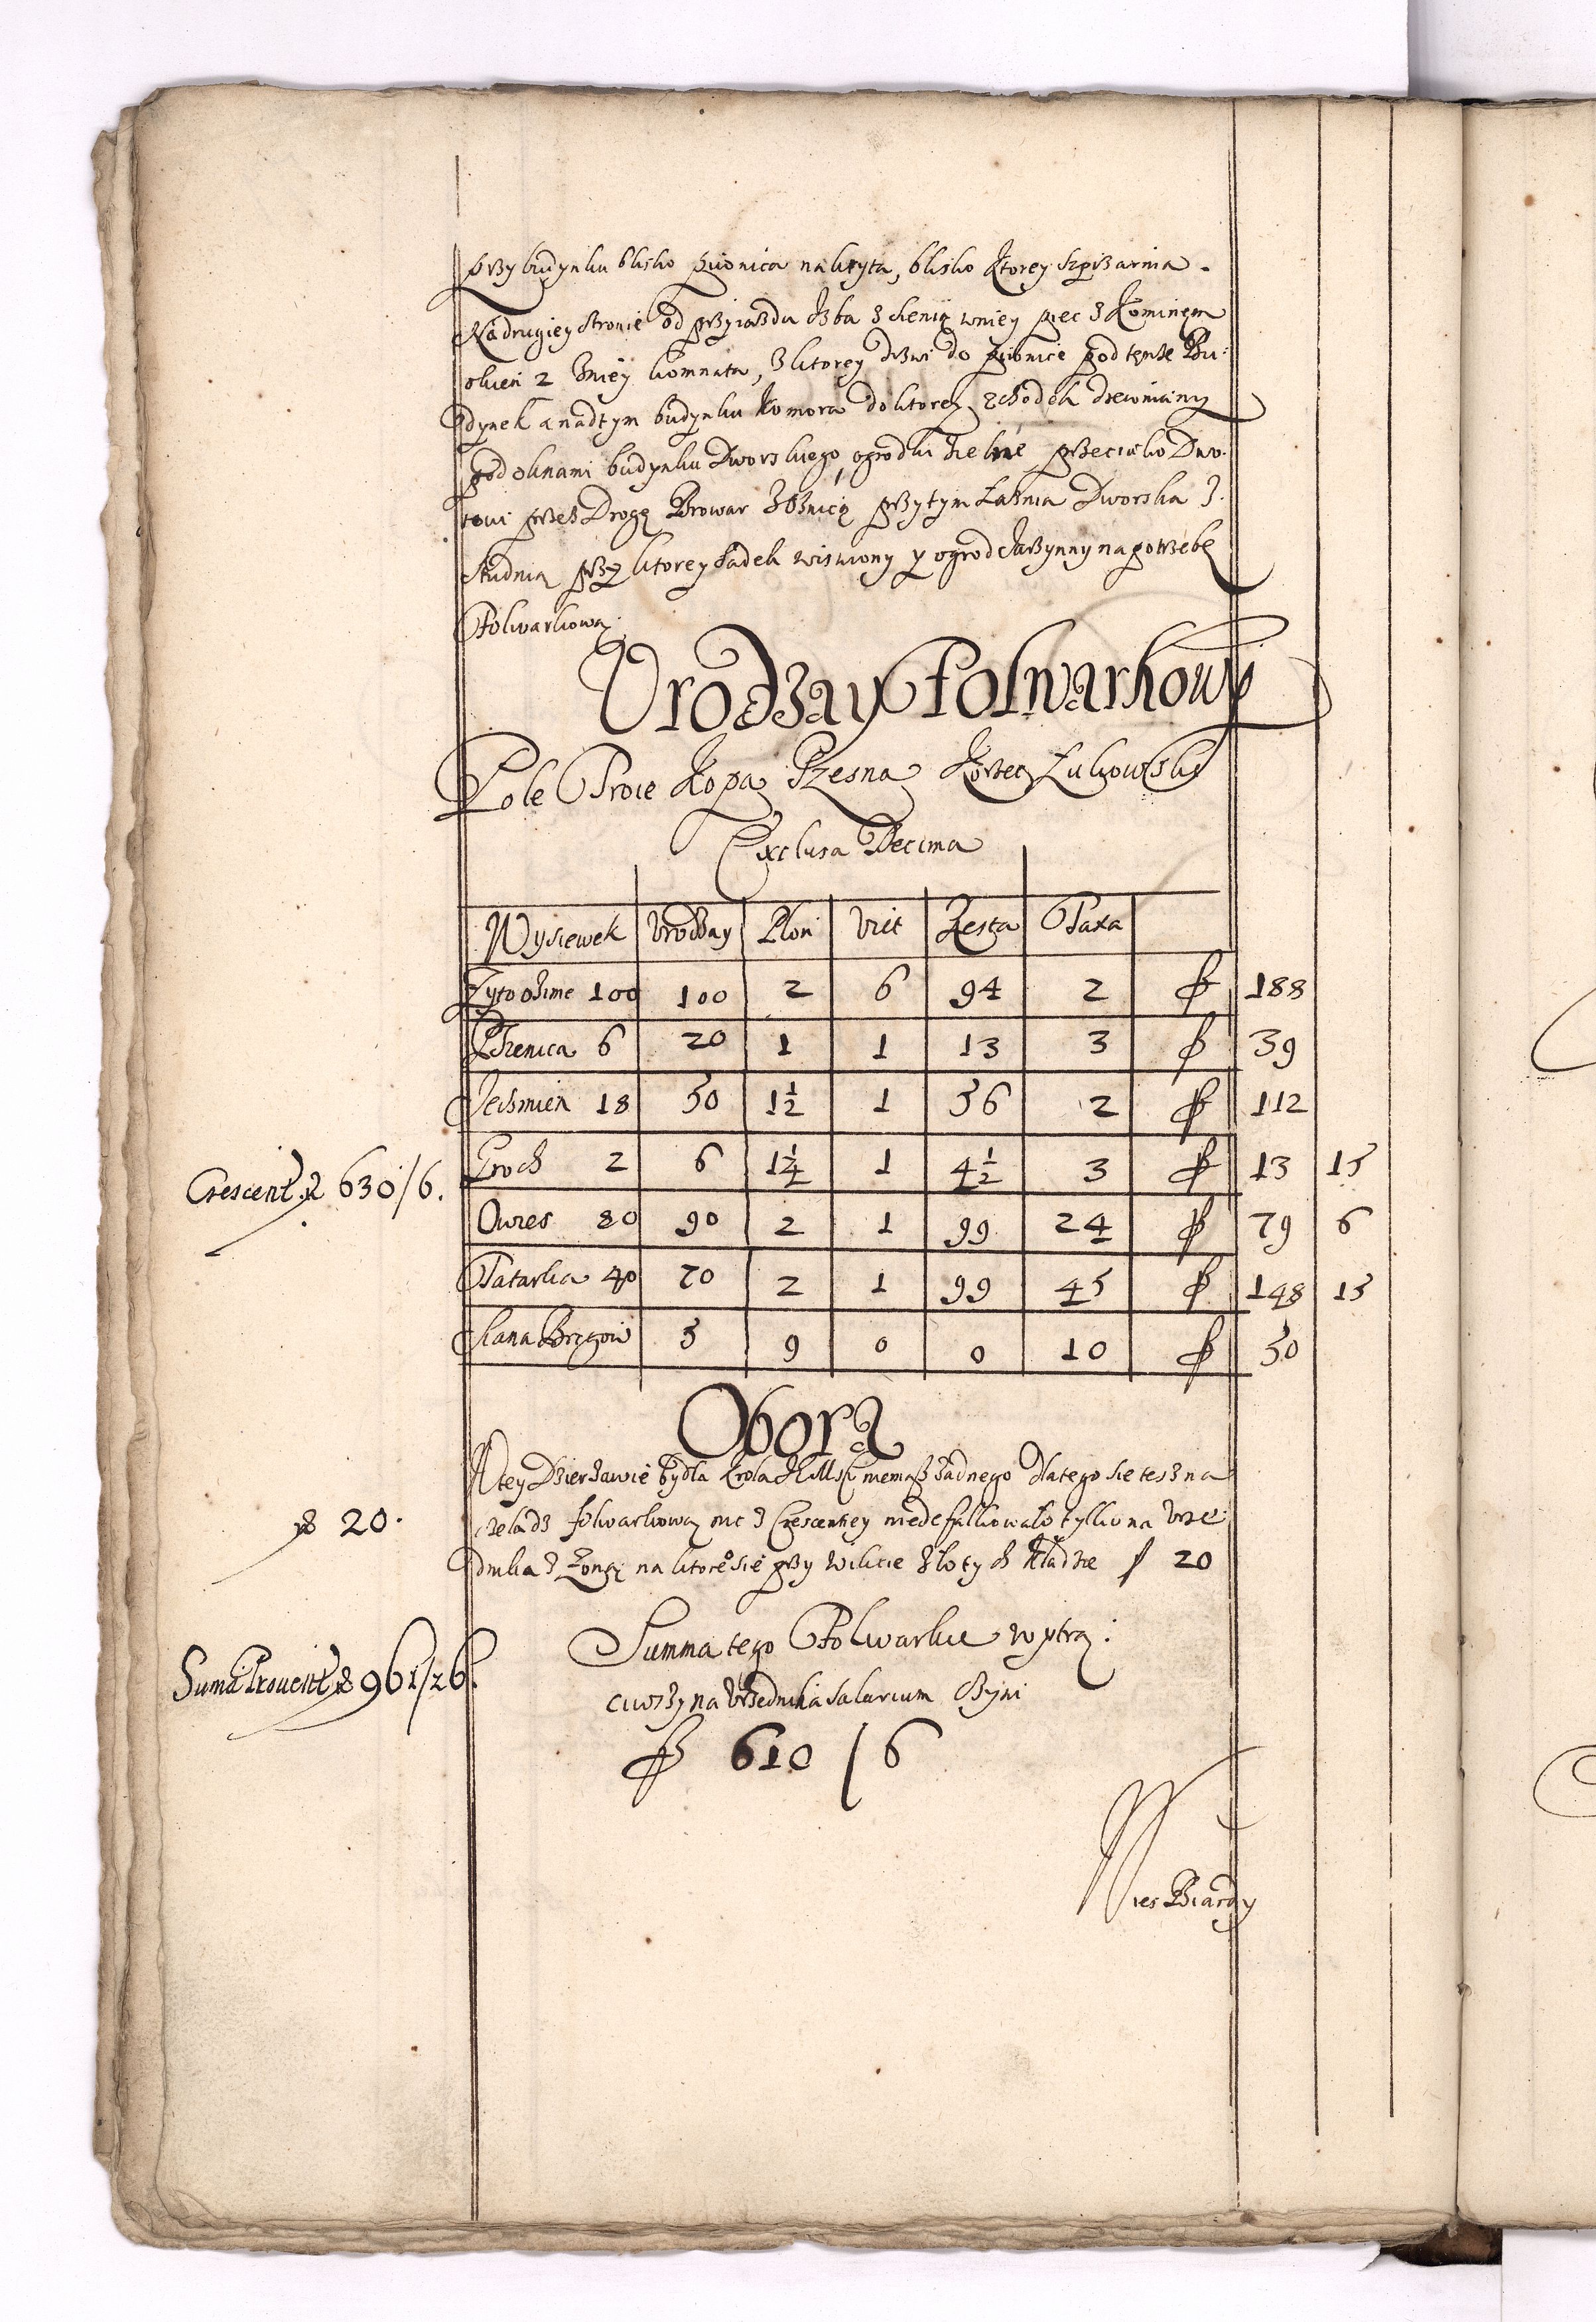 przybudynku blisko piwnica nakryta, blisko ktorey szpiżarnia.
Nadrugiey stronie od przyiazdu Izba z sienią wniey piec z kominem
okien 2 zniey komnata, z ktorey drzwi do piwnice pod tęnże Bu:
dynek a nadtym budynku komora do ktorey zchodek drewniany
pod oknami budynku Dworskiego, ogrodki zielne przeciwko Dwo:
rowi przez Drogę Browar zoznicą przytym Łaznia Dworska z
studnią przy ktorey sadek wisniowy y ogrod Iarzynny na potrzebę
Folwarkową.
Vrodzay Folwarkowy
Pole Troie Kopa Rzesna Korzec Łukowski
Exclusa Decima
Wysiewek Vrodzay Plon Vict Resta Taxa
Zyto ozime 100 100 2 6 94 2 fl 188
Pszenica 6 20 1 1 13 3 fl 39
Jęczmien 18 50 1½ 1 56 2 fl 112
Groch 2 6 1¼ 1 4½ 3 fl 13 15
Crescent. fl 630/6.
Owies 80 90 2 1 99 24 fl 79 6
Tatarka 40 70 2 1 99 45 fl 148 15
Siana Brogow 5 9 0 0 10 fl 50
Obora
Wtey Dzierżawie bydła Krola JeMsci niemasz żadnego Dlatego sie tesz na
czeladz folwarkową nic z Crescentiey niedefalkowało tylko na Vrzę
fl 20.
dnika z Zoną na ktore sie przy wikcie złotych kładzie f 20
Summa tego Folwarku wytrą:
Suma Prouent. fl 961/26.
ciwszy na Vrzednika salarium Czyni
fl 610 / 6
Wies Biardy